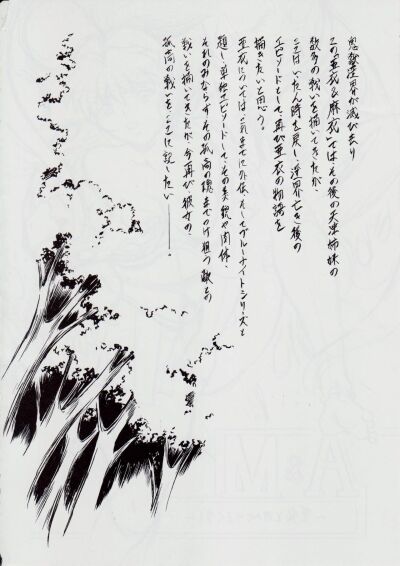 鬼獣淫界が滅び去り
この亜衣&麻衣ではその後の天津姉妹の
数多の戦いを描いてきたが、
ここはいったん時を戻し、淫界亡き後の
エピソードとして再び亜衣の物語を
描きたいと思う。
亜衣については、これまでに外伝、そしてブルーナイトシリーズと
題し、単独エピソードとして、その美貌や肉体、
それのみならずその孤高の魂までつけ狙う敵との
戦いを描いてきたが、今再び彼女の、
孤高の戦いをここに記したい――。